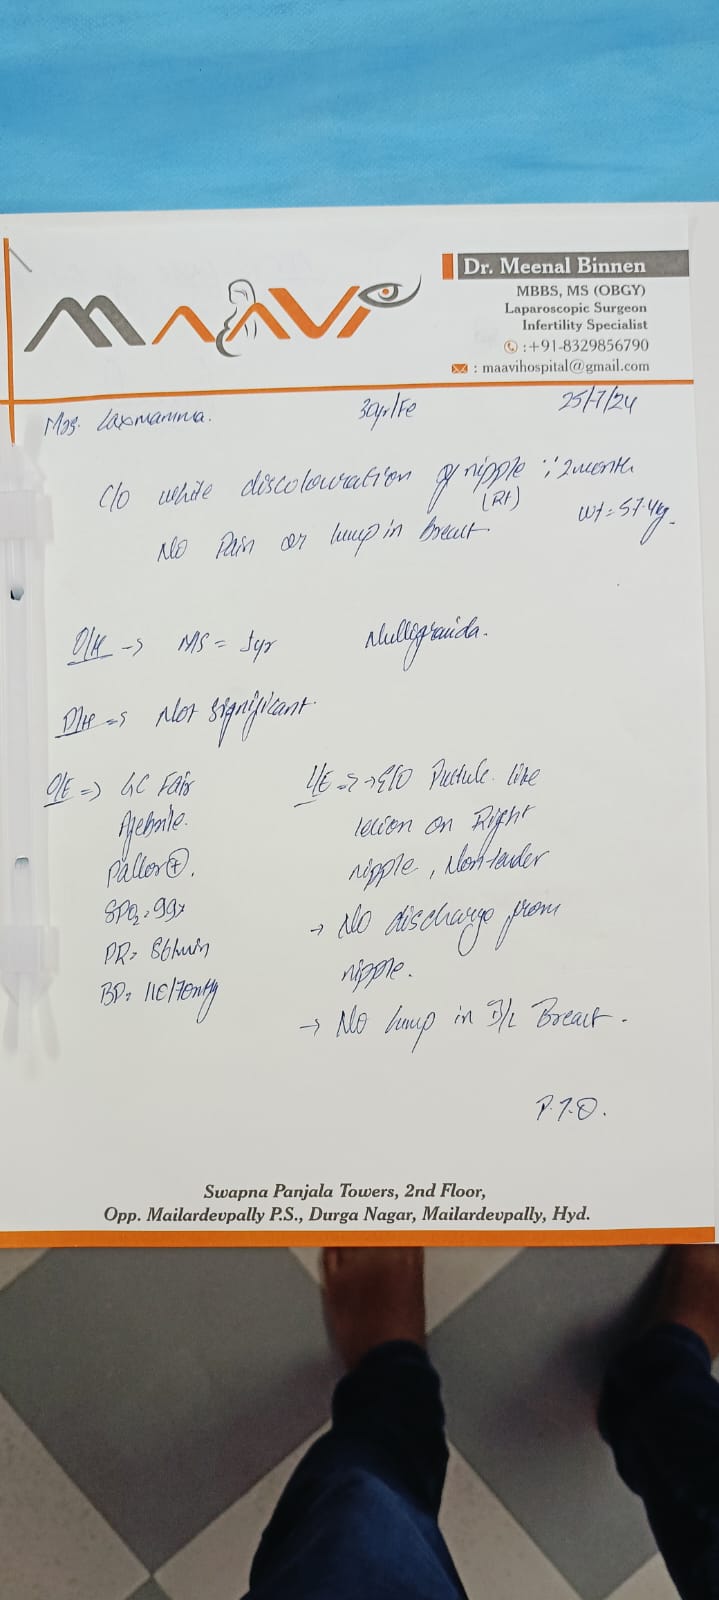 MAAVi
Dr. Meenal Binnen
MBBS, MS (OBGY)
Laparoscopic Surgeon
Infertility Specialist
:+91-8329856790
: maavihospital@gmail.com
Mrs. Laxmamma. 30yr/Fe 25/7/24
C/o white discolouration of nipple ∵ 2month
(Rt)
Wt = 57.4kg.
No Pain or lump in Breast
O/H → MS = 5yr Nulligravida.
Not significant.
O/E => GC Fair
Afebrile.
Pallor⊕.
SPO2 = 99%
PR = 86/min
BP = 110/70mmHg
L/E => → E/O Pustule like
lesion on Right
nipple, Non tender
→ No discharge from
nipple.
→ No lump in B/L Breast.
P.T.O.
Swapna Panjala Towers, 2nd Floor,
Opp. Mailardevpally P.S., Durga Nagar, Mailardevpally, Hyd.